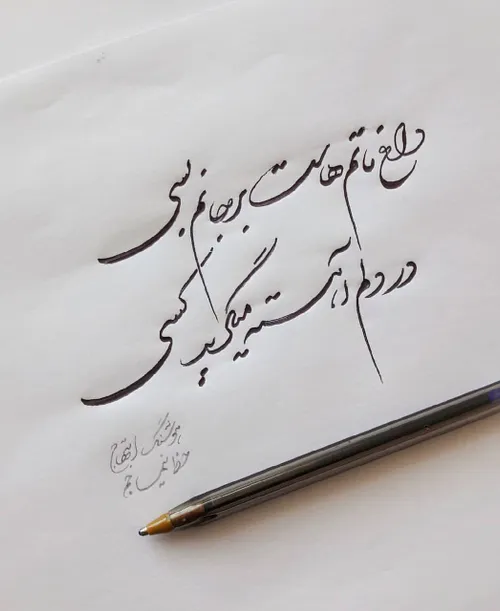 داغ ماتم هاست بر جانم بسی
در دلم آهسته میگرید کسی
هوشنگ ابتهاج
خط نیما جم